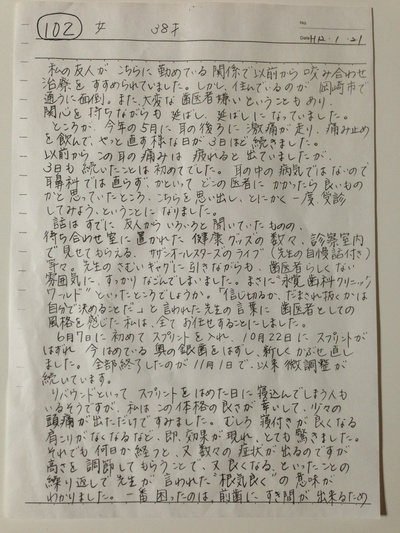 102 女 38才
No.
Date H12・1・21
私の友人が こちらに勤めている 関係で以前から 咬み合わせ
治療を すすめられていました。しかし、住んでいるのが 岡崎市で
通うに面倒。また、大変な 歯医者嫌いということもあり、
関心を 持ちながらも 延ばし、延ばしに なっていました。
ところが、今年の5月に 耳の後ろに 激痛が走り、痛み止め
を飲んで、やっと直す様な日が 3日ほど続きました。
以前から この耳の痛みは 疲れると 出ていましたが、
3日も 続いたことは 初めてでした。耳の中の 病気ではないので
耳鼻科では 直らず、かといって どこの医者に かかったら 良いもの
かと思っていたところ、こちらを思い出し、とにかく一度、受診
してみよう、ということに なりました。
話は すでに 友人からいろいろと 聞いていたものの、
待ち合わせ室に 置かれた 健康グッズの数々、診察室内
で見せてもらえる、サザンオールスターズのライブ(先生の自慢話付き)
等々。先生のさむいギャグに引きながらも、歯医者らしくない
雰囲気に、すっかり なごんでしまいました。まさに"永覚歯科クリニック
ワールド"といったところでしょうか。「信じるか、だまされ抜くかは
自分で決めることだ」と言われた先生の言葉に 歯医者としての
風格を感じた私は、全てお任せすることにしました。
6月7日に 初めてスプリントを入れ、10月22日に スプリントが
はずれ 今はめている 奥の銀歯をはずし、新しくかぶせ直し
ました。全部終了したのが11月1日で、以来 微調整が
続いています。
リバウンドといって スプリントをはめた日に 寝込んでしまう人も
いるそうですが、私は この体格の良さが 幸いして、少々の
頭痛が 出ただけですみました。むしろ 寝付きが良くなる
肩こりがなくなるなど、即、効果が現れ、とても 驚きました。
それでも 何日か経つと、又 数々の 症状が出るのですが
高さを調節してもらうことで、又 良くなる、といったことの
繰り返しで先生が 言われた"根気良く"の意味が
わかりました。一番困ったのは、前歯に すき間が 出来るため